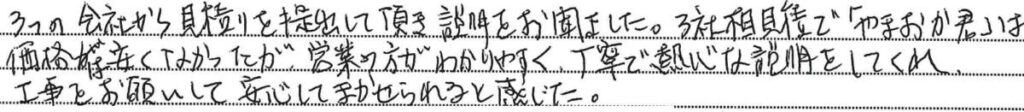 3つの会社から見積りを提出して頂き説明をお聞ました。3社相見積で「やまおか君」は
価格は安くなかったが、営業の方がわかりやすく、丁寧で熱心な説明をしてくれ、
工事をお願いして安心してまかせられると感じた。